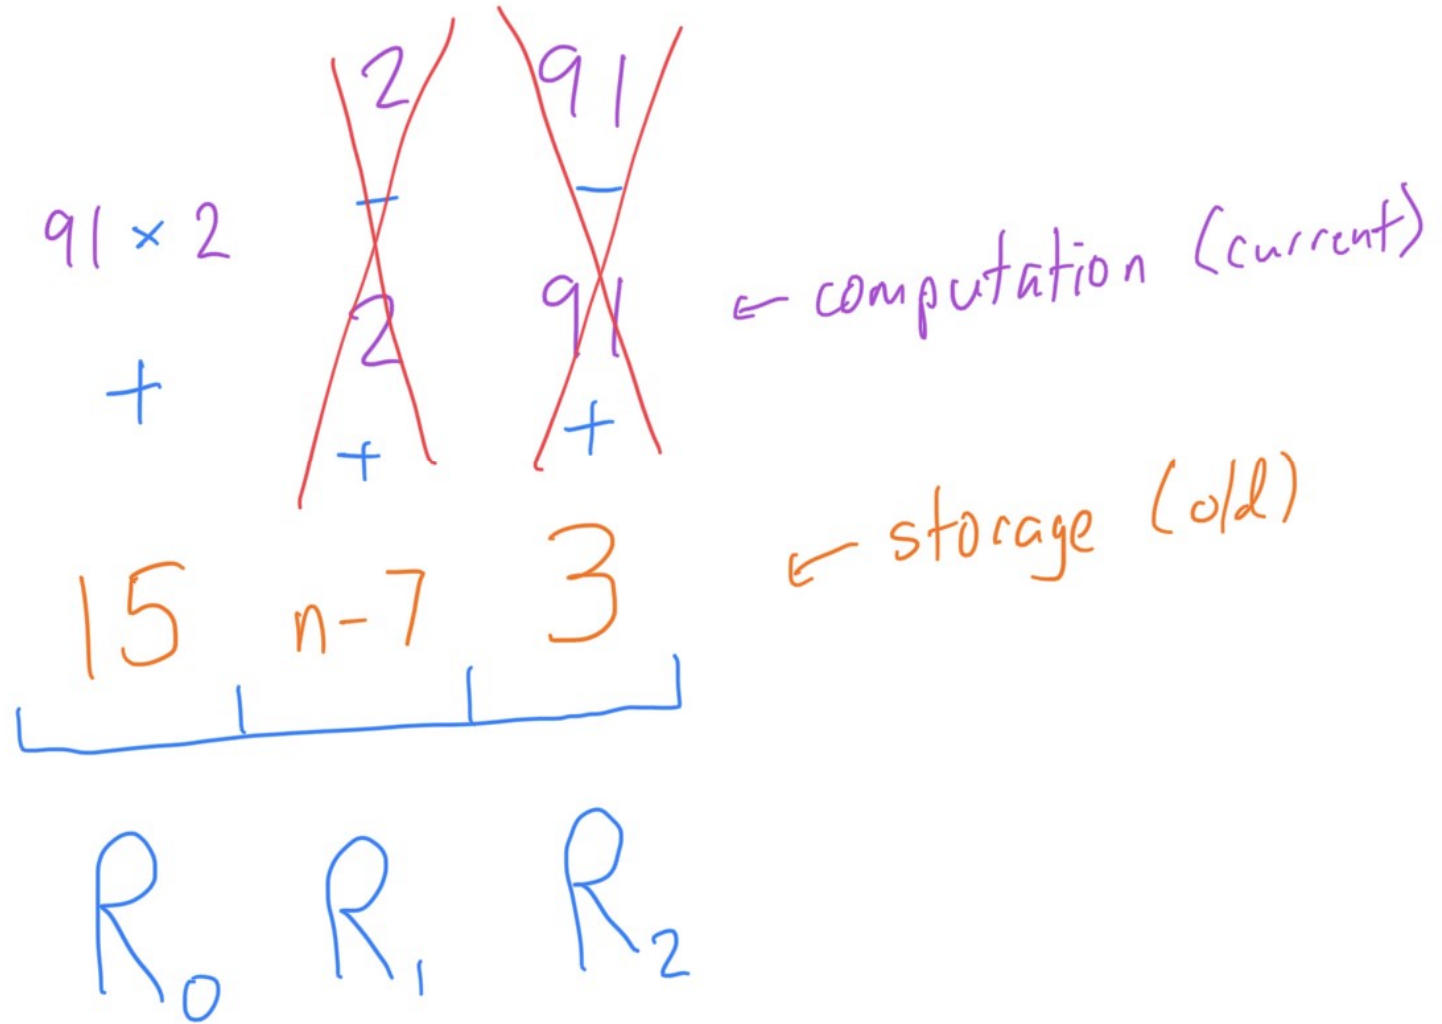 2 91
− −
91 × 2
2 91
← computation (current)
+ + +
15 n-7 3
← storage (old)
R₀ R₁ R₂